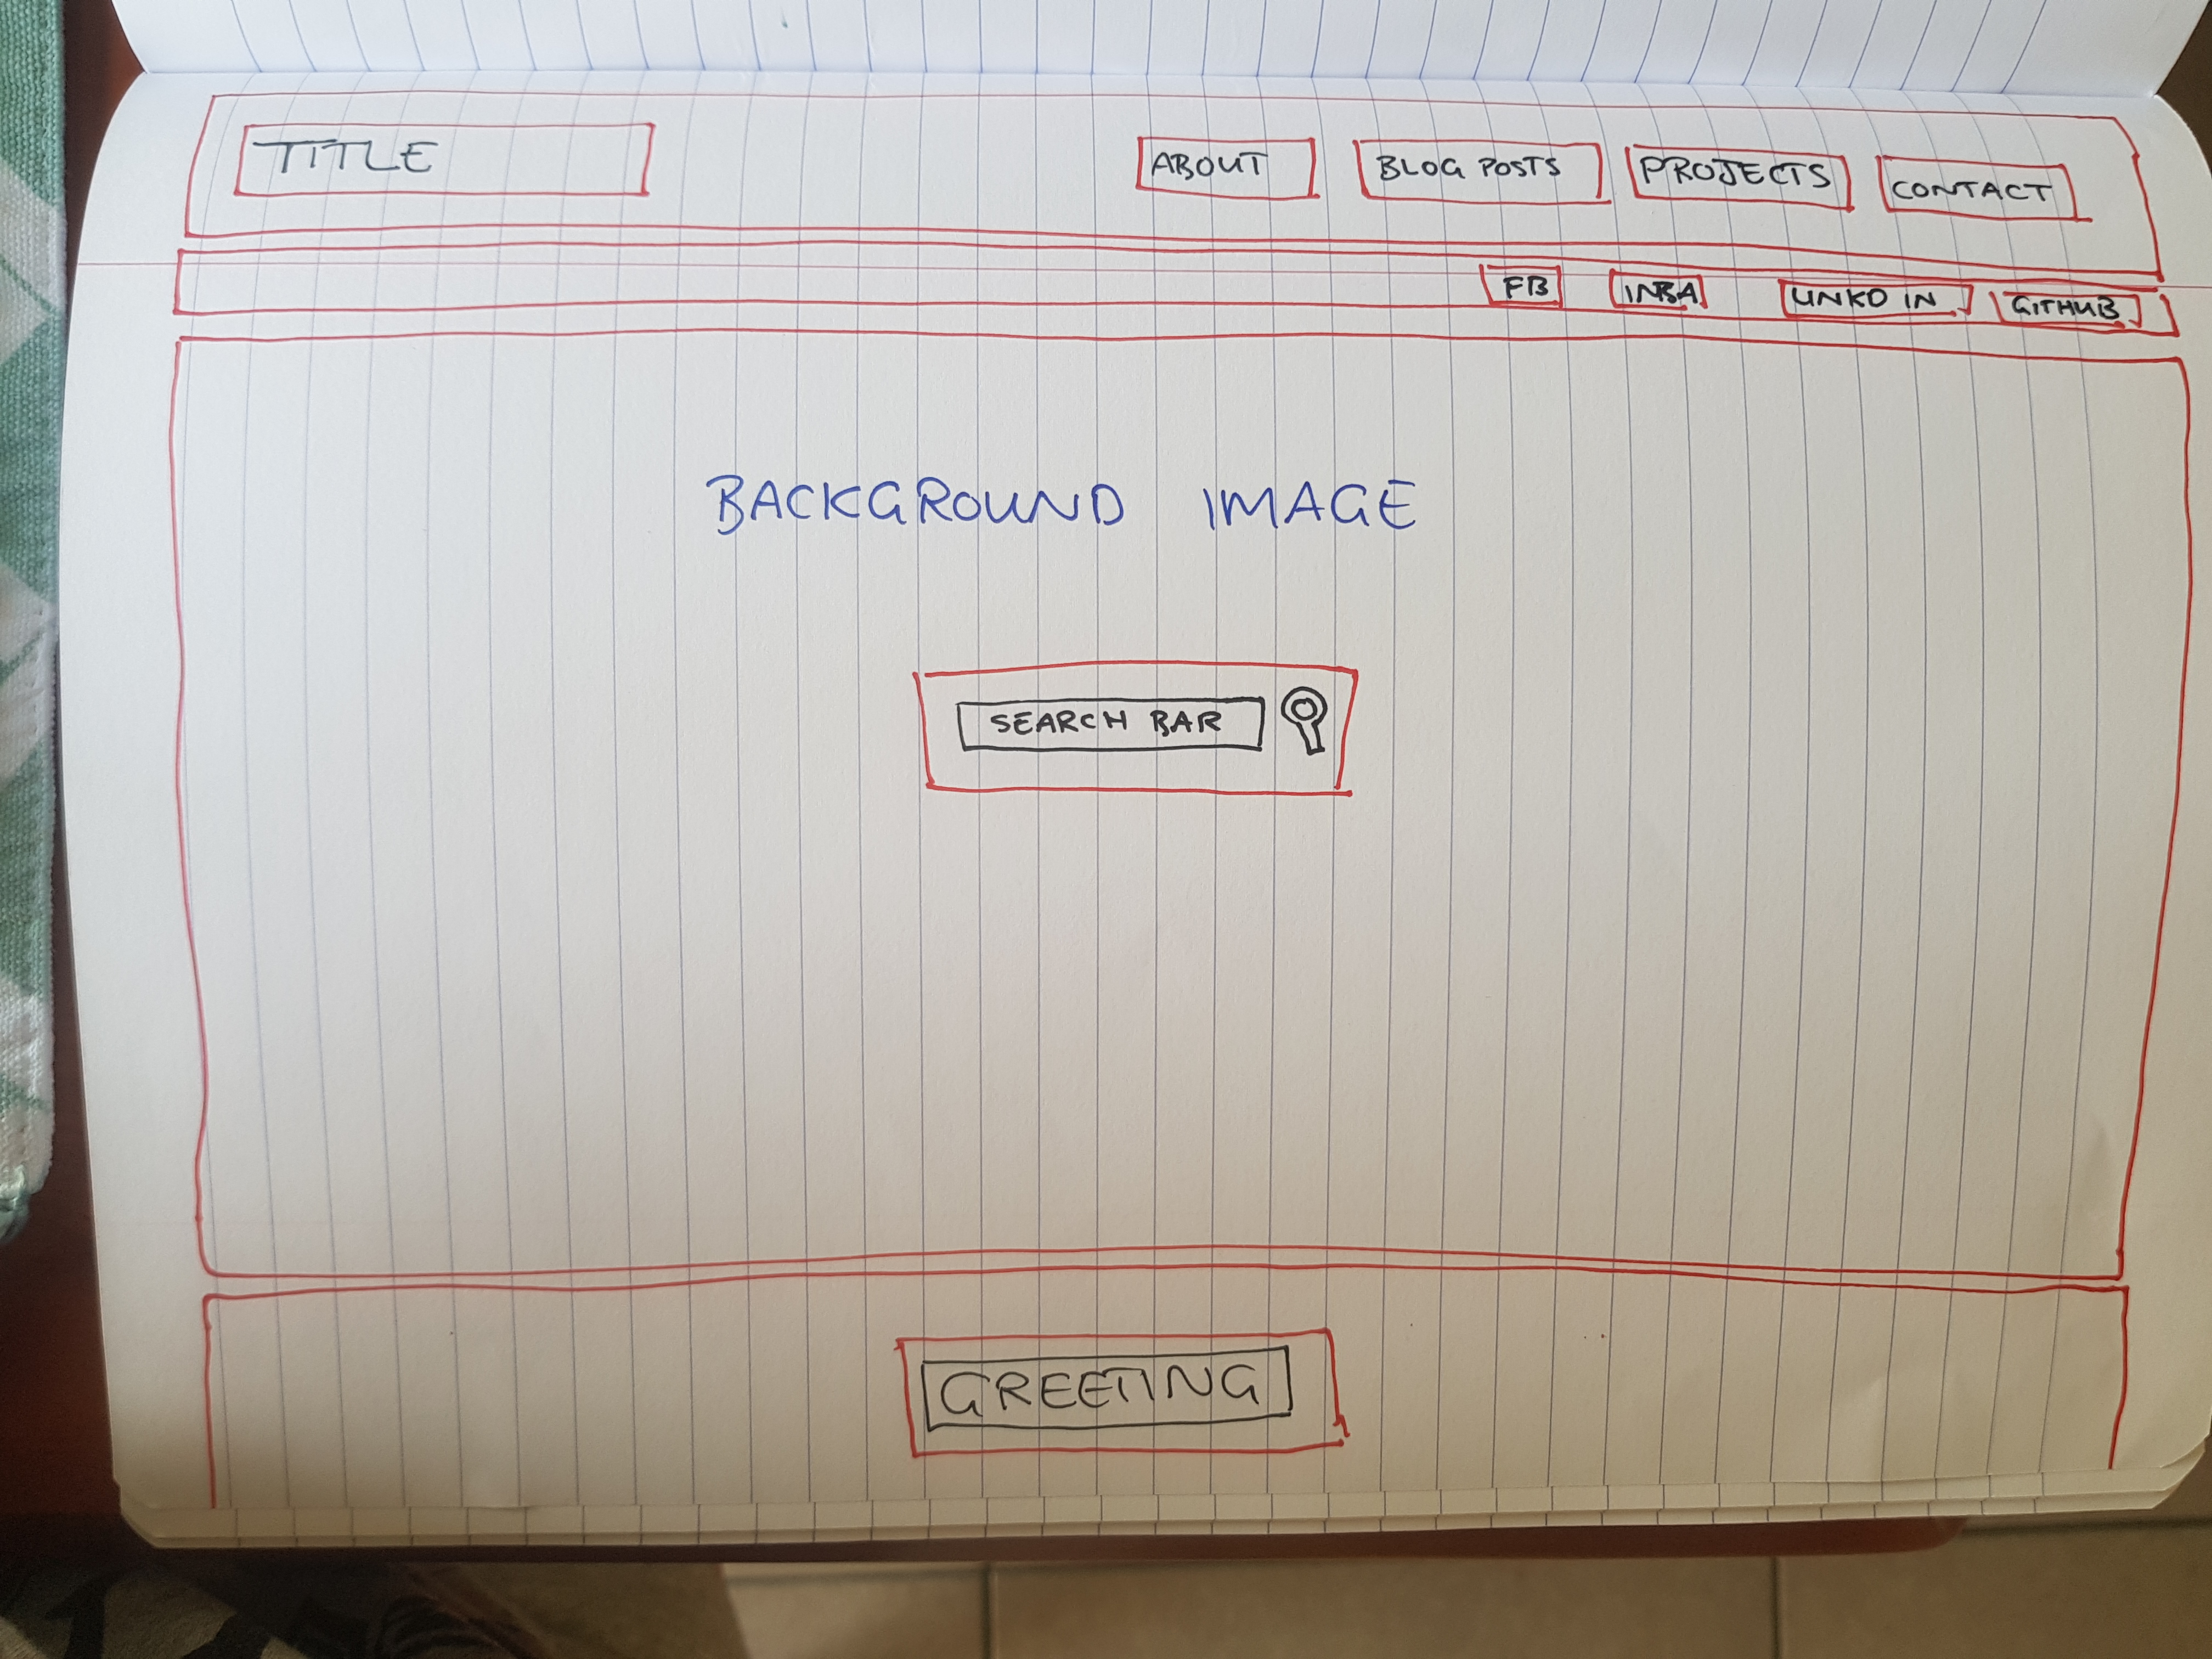 TITLE ABOUT BLOG POSTS PROJECTS CONTACT
FB INBA LINKD IN GITHUB
BACKGROUND IMAGE
SEARCH BAR
GREETING